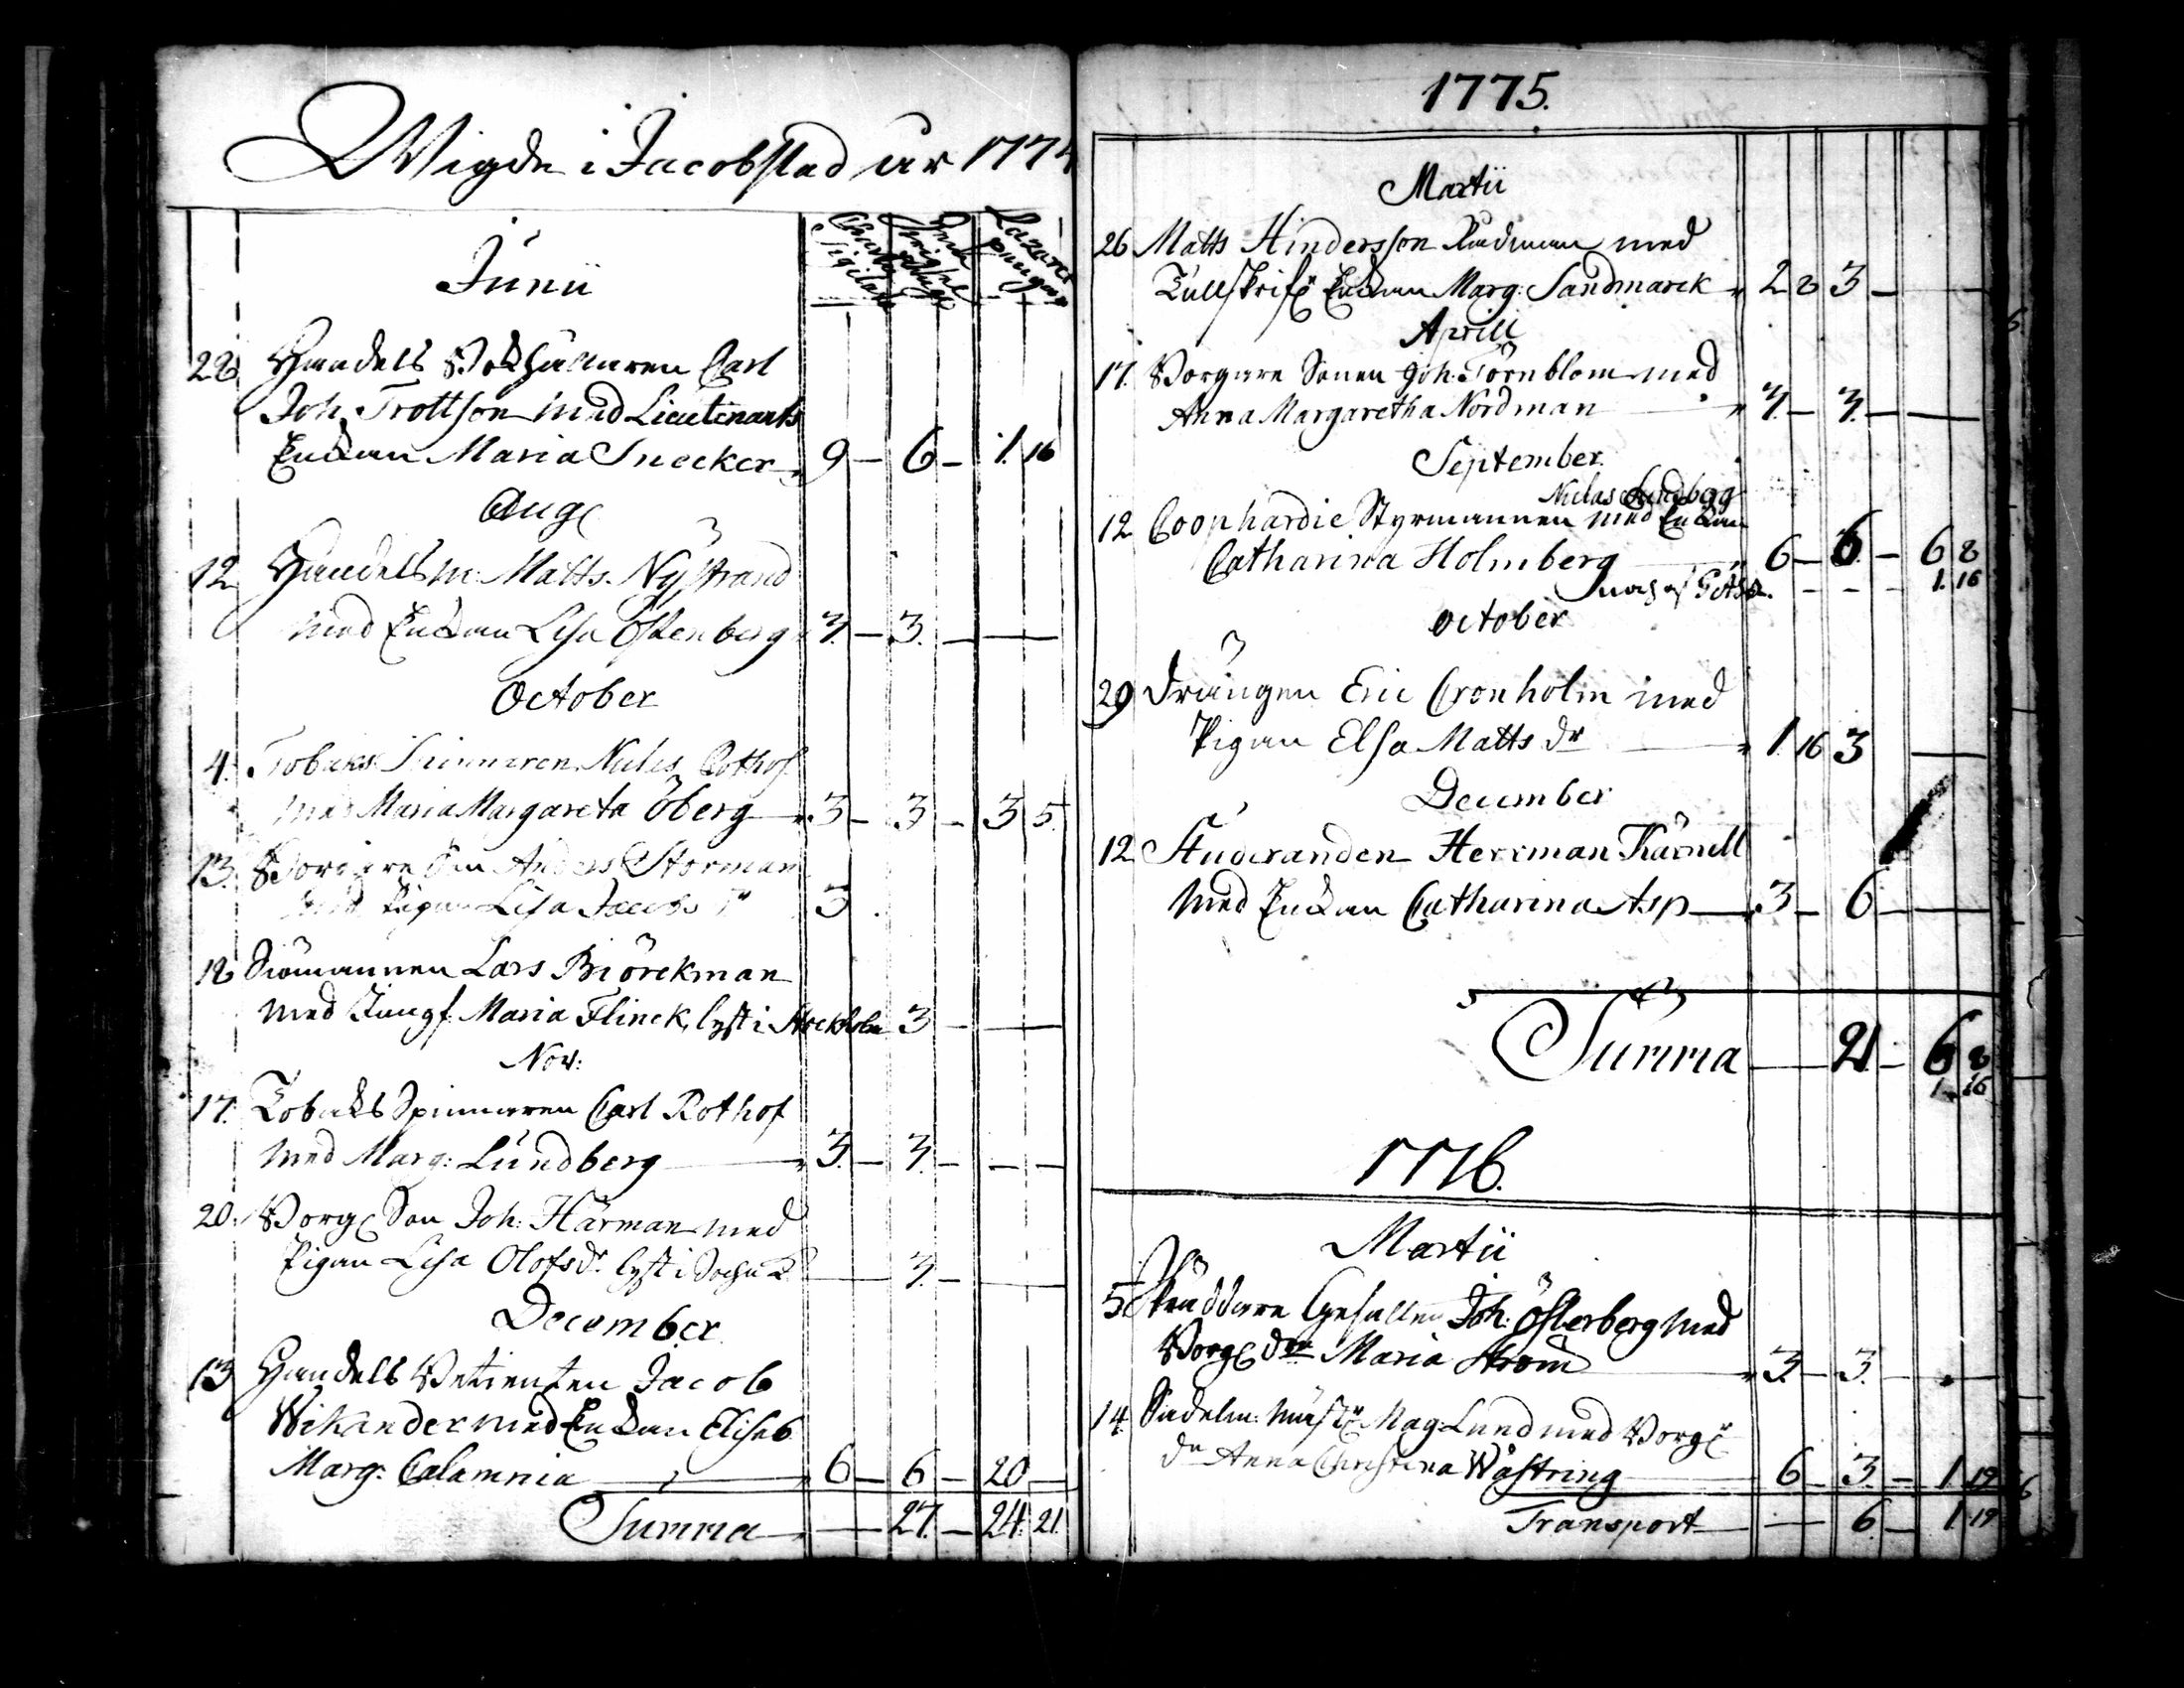 Wigde i Jacobstad år 1774
Junii
Charta Sigilata
Lazarets pengar
28 Handels Bokhållaren Carl
Joh. Trottson med Lieutenants
Enckan Maria Snecker 9 — 6 — 1. 16
Aug
12 Handelsm: Matts Nystrand
med Enckan Lisa Östenberg 3. — 3. — —
October
4. Tobaks Spinnaren Niclas Rothof
med Maria Margareta Öberg 3 — 3 — 3 5.
13. Borgare Son Anders Storman
med Pigan Lisa Jacobs dr 3
18 Siömannen Lars Biörckman
med Jungf. Maria Flinck, lyst i Stockholm 3 — —
Nov:
17. Tobaks Spinnaren Carl Rothof
med Marg: Lundberg 3. — 3. — — —
20. Borg Son Joh: Härman med
Pigan Lisa Olofsdr lyst i — 3. — —
December
13 Handels Betienten Jacob
Wikander med Enckan Elisab
Marg: Calamnia 6 — 6 — 20 —
Summa — 27. — 24. 21.
1775.
Martii
26 Matts Hindersson Rådman med
Tullskrif Enckan Marg: Sandmarck 2 8 3 — —
Aprill
17. Borgare Sonen Joh. Törnblom med
Anna Margaretha Nordman 3. — 3. — —
September
Niclas Lundberg
12 Coophardie Styrmannen med Enckan
Catharina Holmberg 6 — 6 — 6 8
- - - 1. 16
October
29 Drängen Eric Cronholm med
Pigan Elsa Matts dr 1. 16 3 —
December
12 Studeranden Herrman Kärnell
med Enckan Catharina Asp 3 — 6 — —
Summa — 21 — 6 8
1. 16
1776.
Martii
5. Skräddare Gesällen Joh: Österberg med
Borg dr Maria Ström 3. — 3. — —
14. Sadelm: mäst Mag: Lund med Borg
dr Anna Christina Wåstring 6 — 3. — 1. 19
Transport — 6. — 1. 19